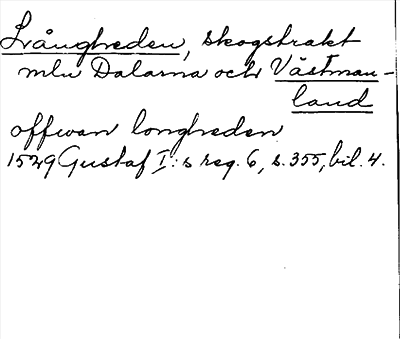 Långheden, skogstrakt
mln Dalarna och Västman-
land
offwan longheden
1529 Gustaf I:s reg. 6, s. 355, bil. 4.